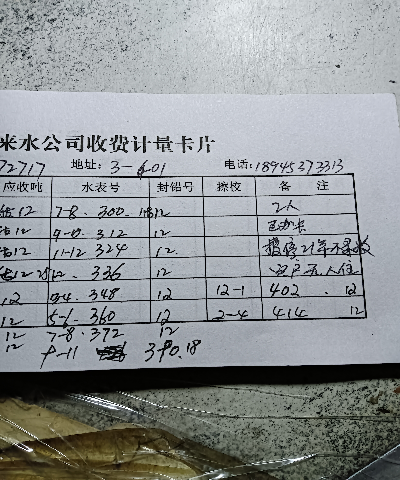 来水公司收费计量卡片
72717 地址: 3-601 电话: 18945373313
应收吨 水表号 封铅号 擦校 备 注
12 7-8. 300. 12 2人
12 9-10. 312 12
12 11-12 324 12.
12 336 12 户无人住
12 3-4. 348 12 12-1 402. 12
12 5-6. 360 12 2-4 414 12
12 7-8. 372 12
12 9-11 390.18